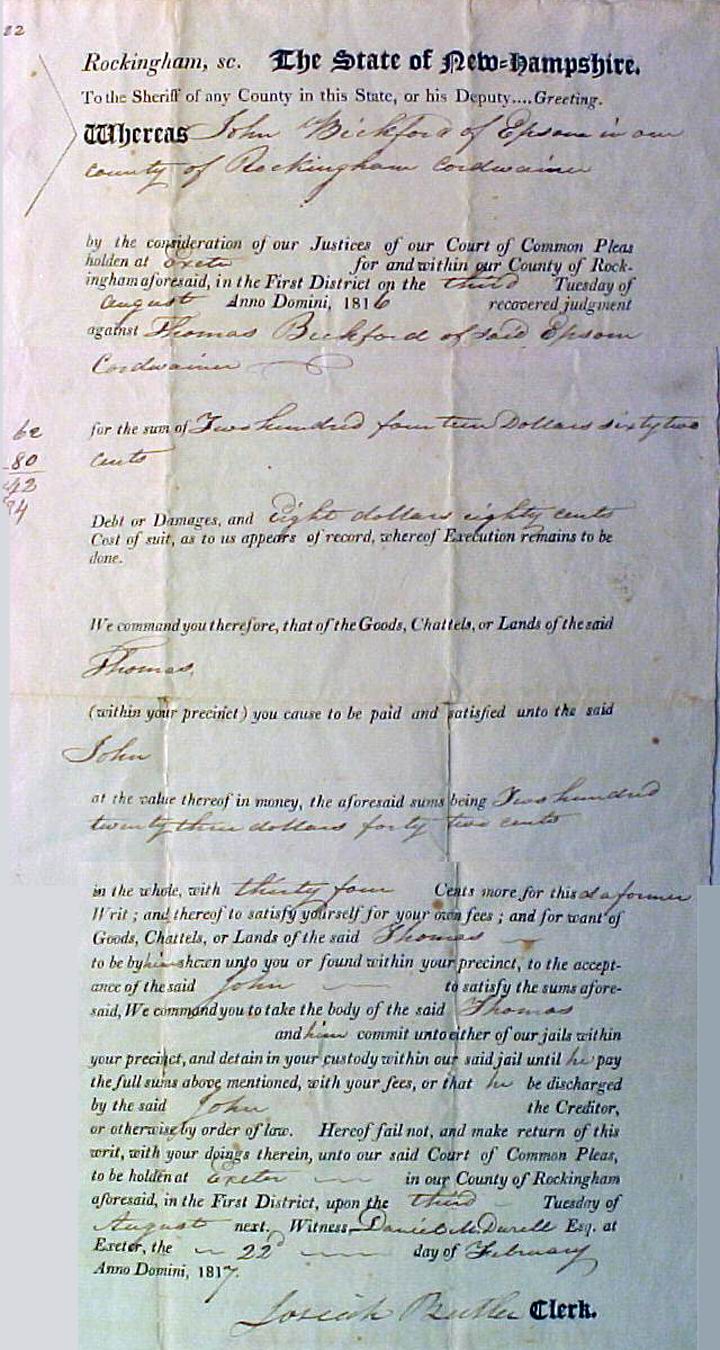 22
Rockingham, sc. The State of New-Hampshire.
To the Sheriff of any County in this State, or his Deputy....Greeting.
Whereas John Bickford of Epsom in our
county of Rockingham Cordwainer
by the consideration of our Justices of our Court of Common Pleas
holden at Exeter for and within our County of Rock-
ingham aforesaid, in the First District on the third Tuesday of
August Anno Domini, 1816 recovered judgment
against Thomas Bickford of said Epsom
Cordwainer
62 for the sum of Two hundred fourteen Dollars sixty two
80 cents
42
34
Debt or Damages, and Eight dollars eighty cents
Cost of suit, as to us appears of record, whereof Execution remains to be
done.
We command you therefore, that of the Goods, Chattels, or Lands of the said
Thomas
(within your precinct) you cause to be paid and satisfied unto the said
John
at the value thereof in money, the aforesaid sums being Two hundred
twenty three dollars forty two cents
in the whole, with thirty four Cents more for this & a former
Writ ; and thereof to satisfy yourself for your own fees ; and for want of
Goods, Chattels, or Lands of the said Thomas
to be by him shewn unto you or found within your precinct, to the accept-
ance of the said John to satisfy the sums afore-
said, We command you to take the body of the said Thomas
and him commit unto either of our jails within
your precinct, and detain in your custody within our said jail until he pay
the full sums above mentioned, with your fees, or that he be discharged
by the said John the Creditor,
or otherwise by order of law. Hereof fail not, and make return of this
writ, with your doings therein, unto our said Court of Common Pleas,
to be holden at Exeter in our County of Rockingham
aforesaid, in the First District, upon the third Tuesday of
August next. Witness, Daniel M Durell Esq. at
Exeter, the 22d day of February
Anno Domini, 1817.
Josiah Butler Clerk.